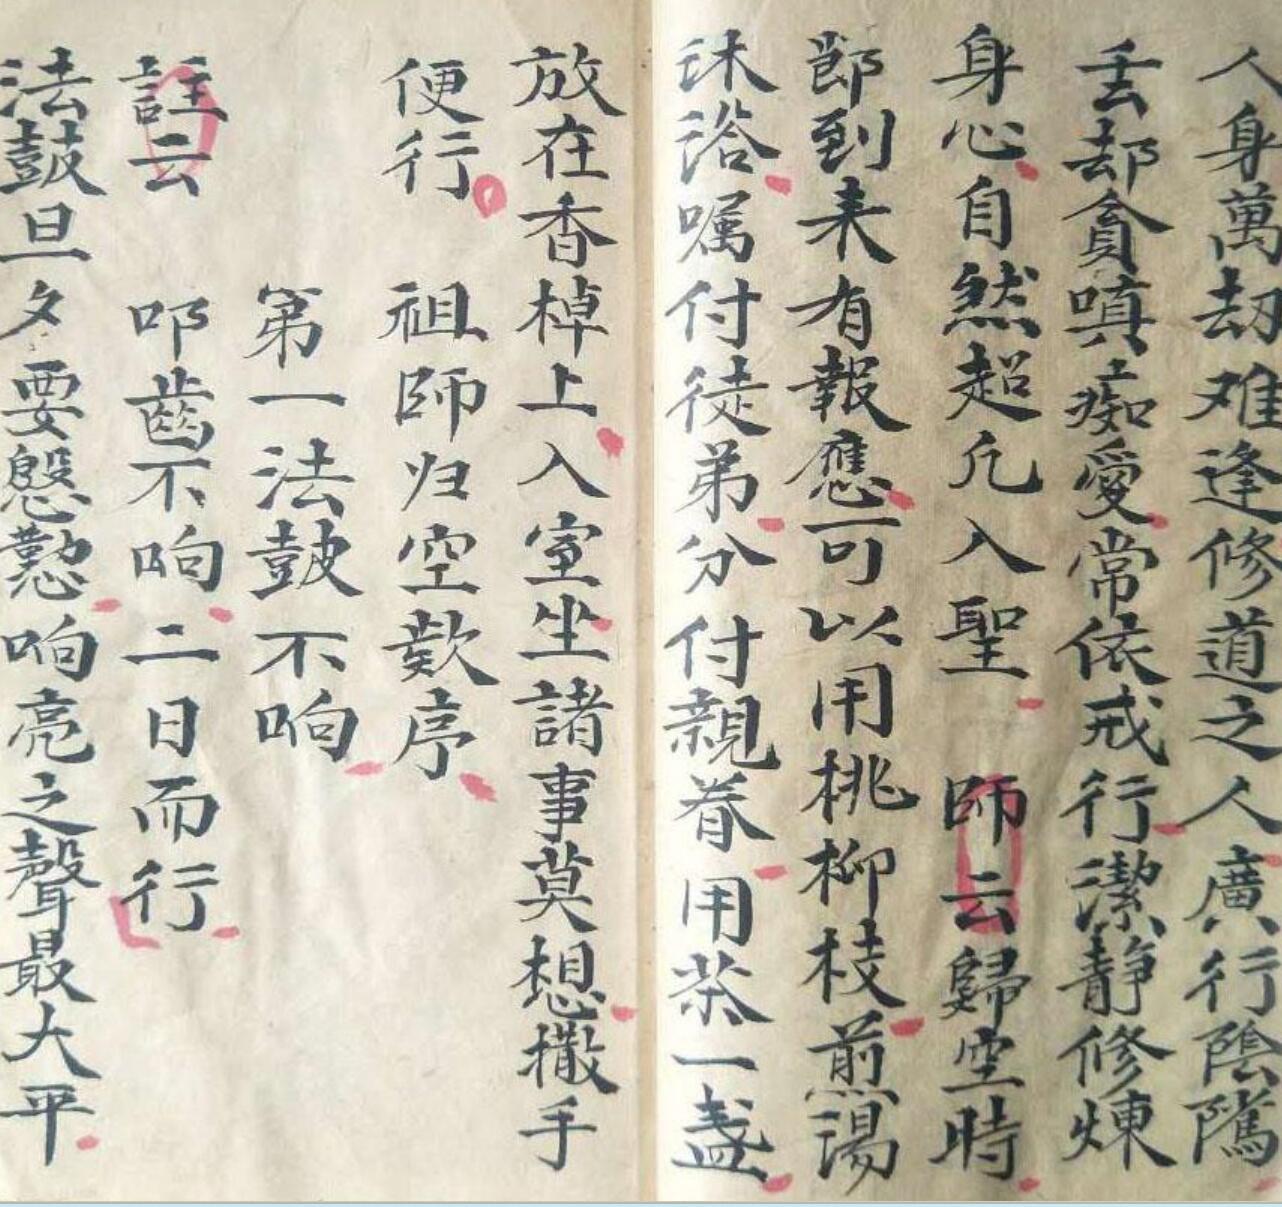 人身萬劫难逢修道之人廣行陰隲
丢却貪嗔痴愛常依戒行潔静修煉
身心自然超凢入聖　師云歸空時
郎到来有報應可以用桃柳枝煎湯
沐浴嘱付徒弟分付親眷用茶一盏
放在香棹上入室坐諸事莫想撒手
便行　祖師归空歎序
第一法鼓不响
註云　叩齒不响二日而行
法鼓旦夕要慇懃响亮之聲最大平